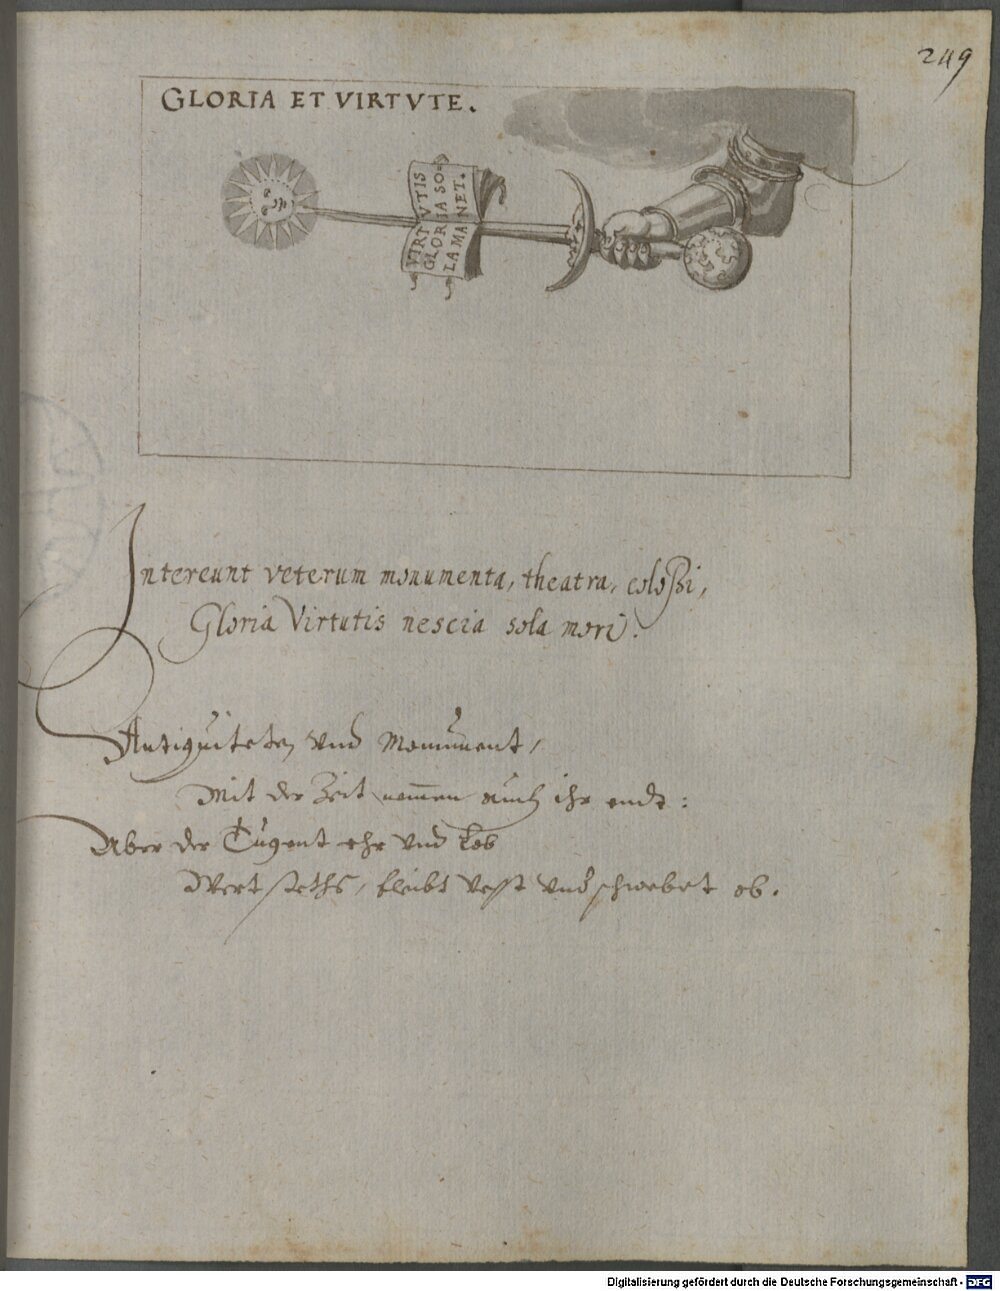 249
GLORIA ET VIRTVTE.
VIRTVTIS
GLORIA SO-
LA MANET.
Intereunt veterum monumenta, theatra, coloßi,
Gloria Virtutis nescia sola mori.
Antiquiteten vnd Monument,
Mit der Zeit nemmen auch ihr endt:
Aber der Tugent ehr vnd Lob
Wert steths, bleibt vest vnd schwebet ob.
Digitalisierung gefördert durch die Deutsche Forschungsgemeinschaft - DFG